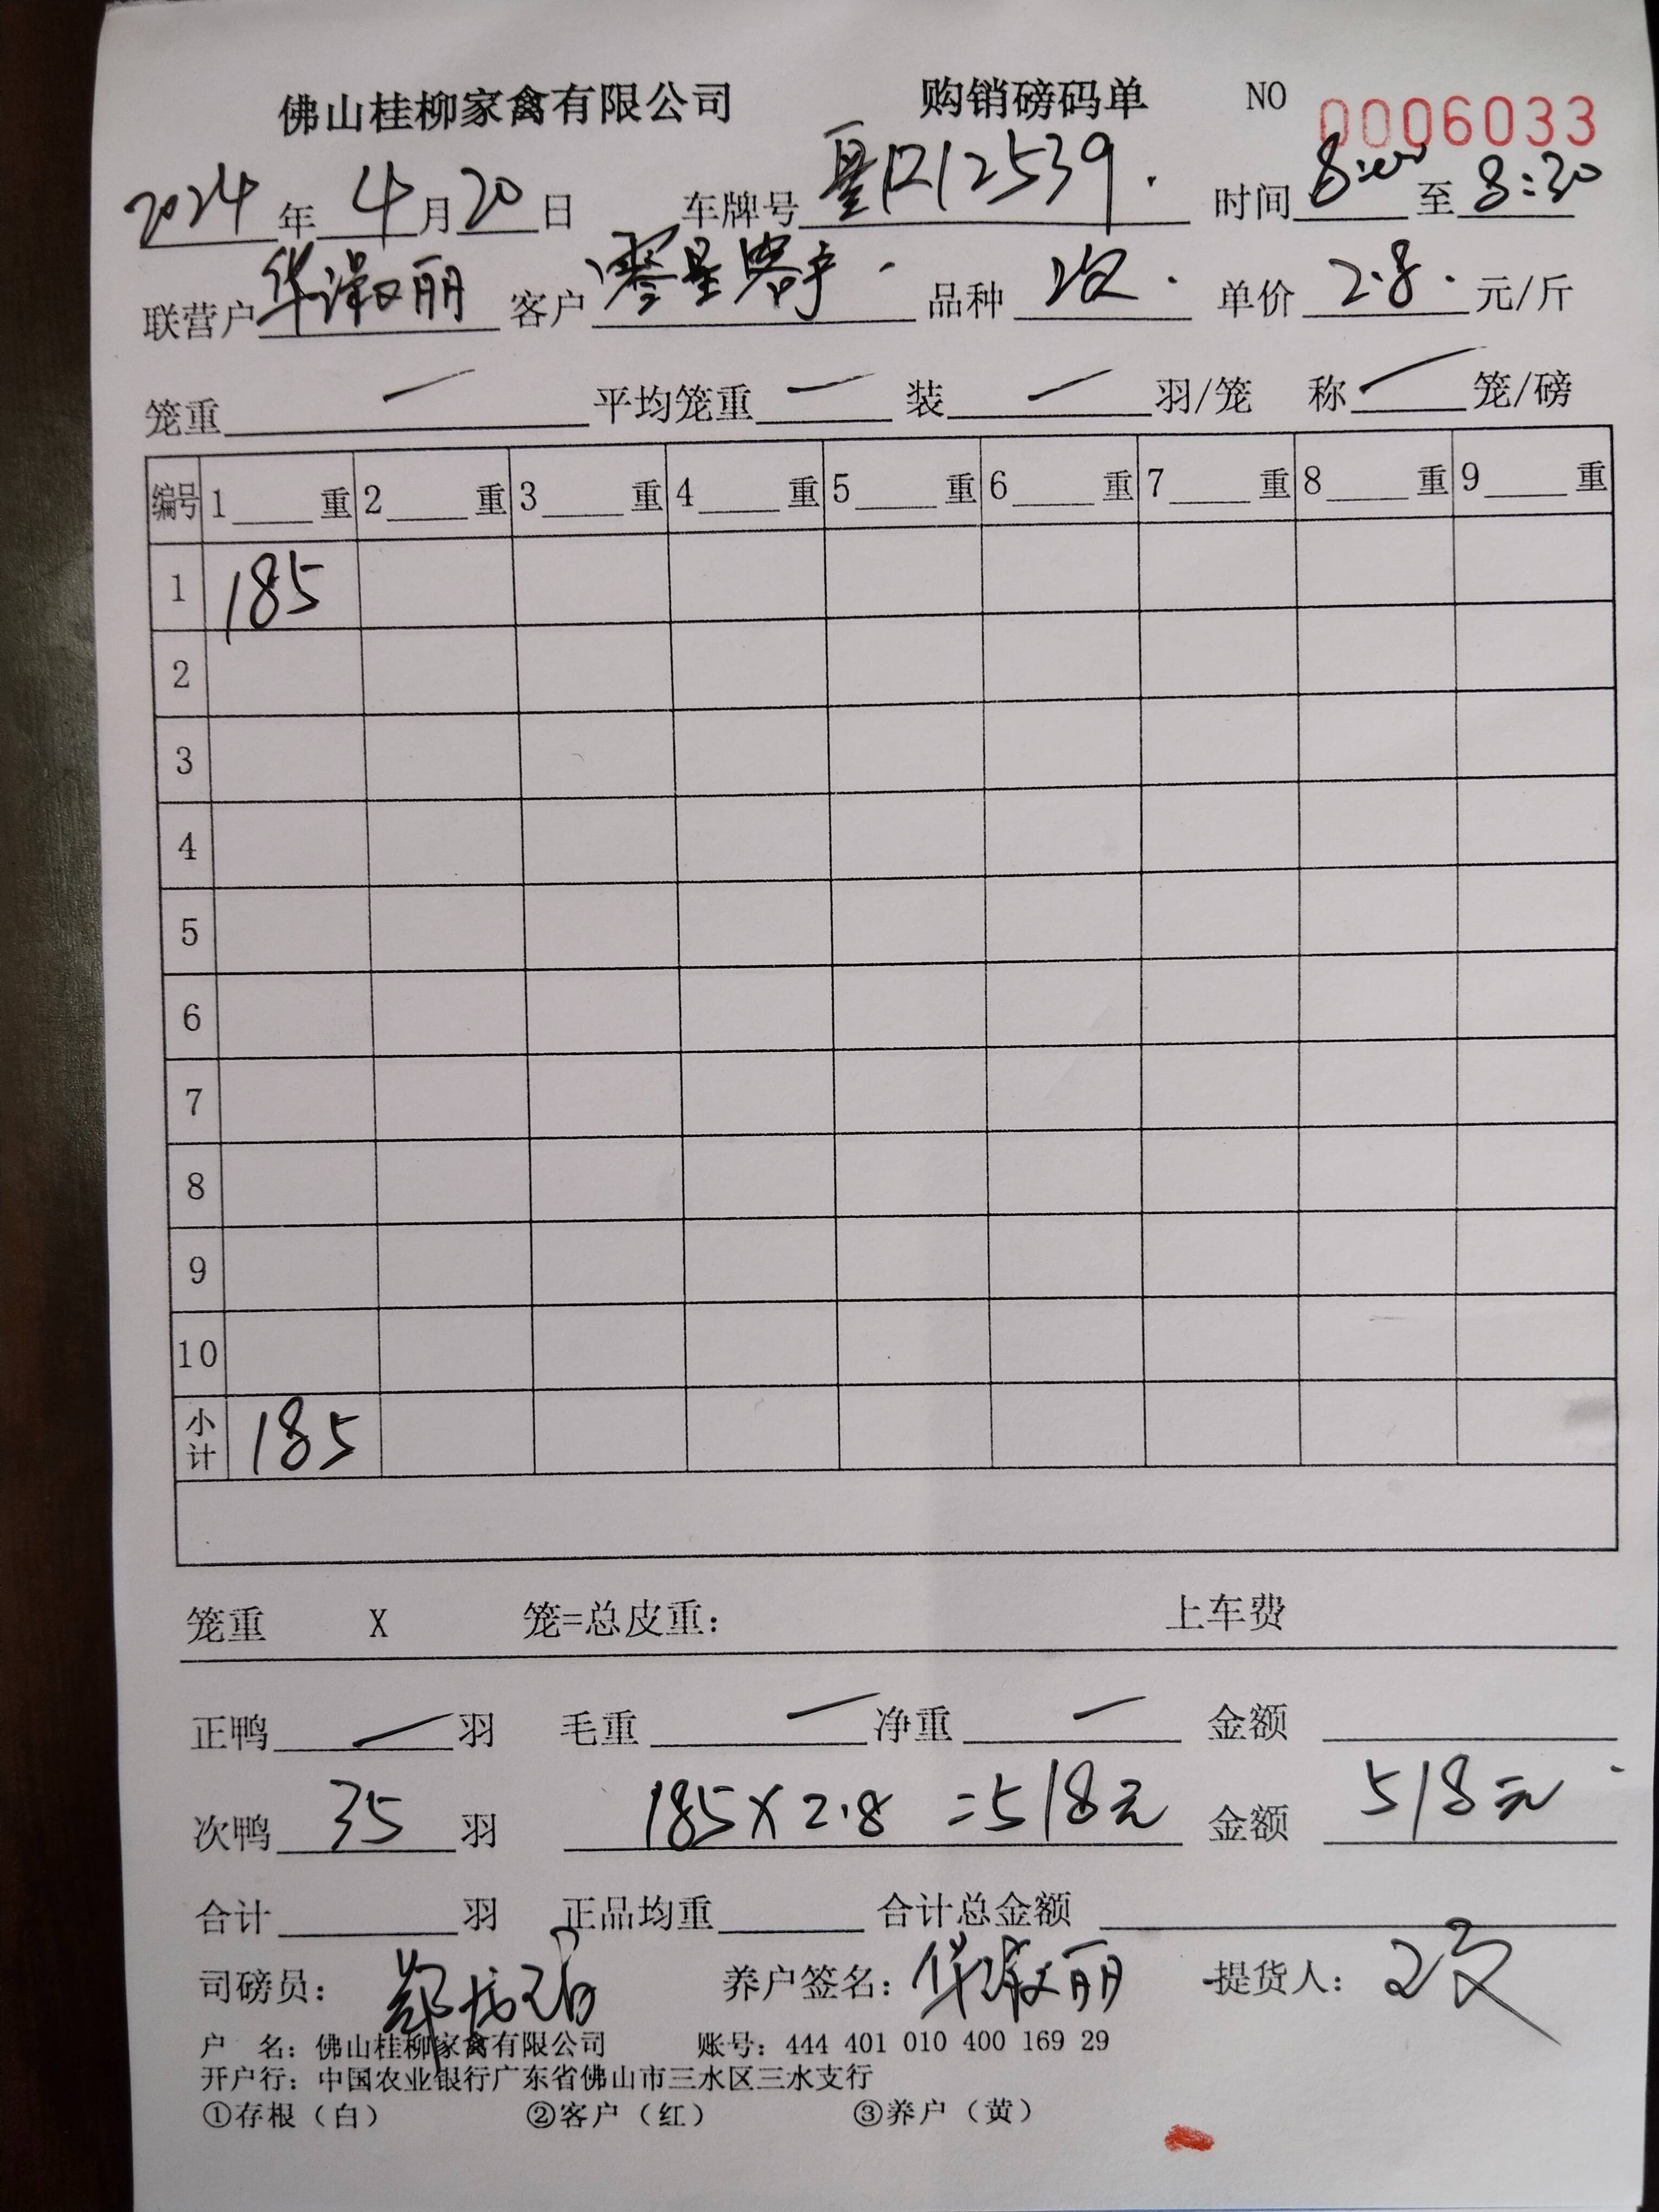 佛山桂柳家禽有限公司 购销磅码单 NO 0006033
2024年4月20日 车牌号 12539. 时间8:00至8:30
联营户华淑丽 客户零星客户. 品种次. 单价2.8.元/斤
笼重— 平均笼重— 装—羽/笼 称—笼/磅
编号 1____重 2____重 3____重 4____重 5____重 6____重 7____重 8____重 9____重
1 185
2
3
4
5
6
7
8
9
10
小计 185
笼重 X 笼=总皮重: 上车费
正鸭—羽 毛重— 净重— 金额
次鸭35羽 185X2.8=518元 金额518元
合计 羽 正品均重 合计总金额
司磅员: 郑 养户签名: 华淑丽 提货人:
户 名: 佛山桂柳家禽有限公司 账号: 444 401 010 400 169 29
开户行: 中国农业银行广东省佛山市三水区三水支行
①存根(白) ②客户(红) ③养户(黄)